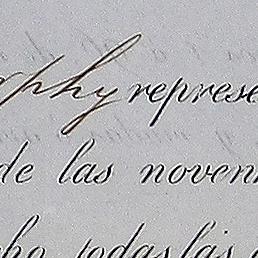 phy represe
de las noven
ho todas las